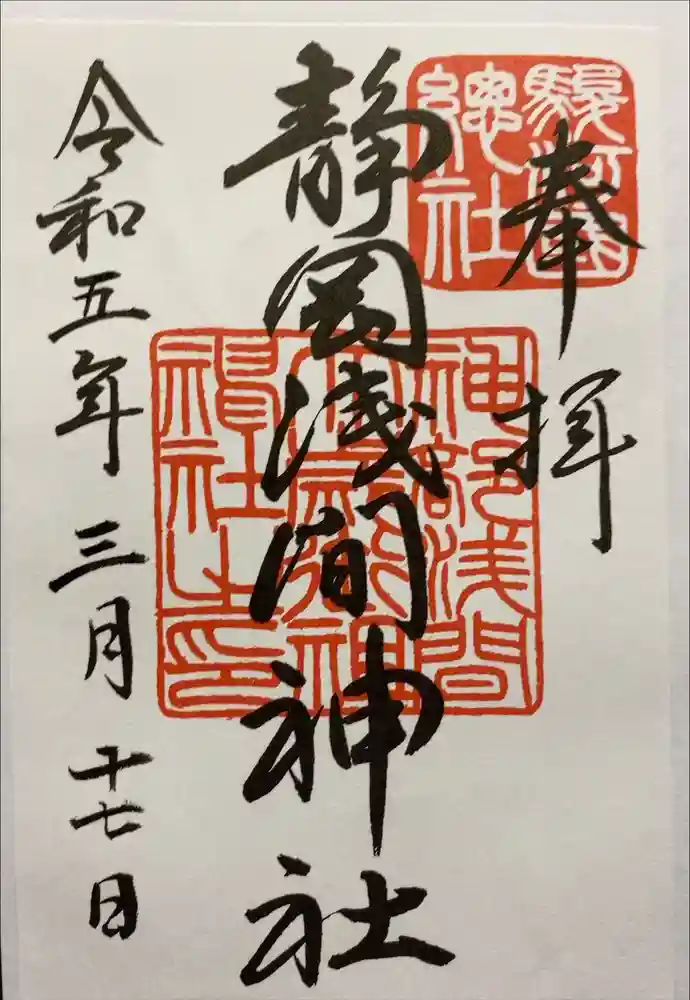 駿河國
總社
奉拝
静岡浅間神社
神部浅間
社之印
令和五年三月十七日